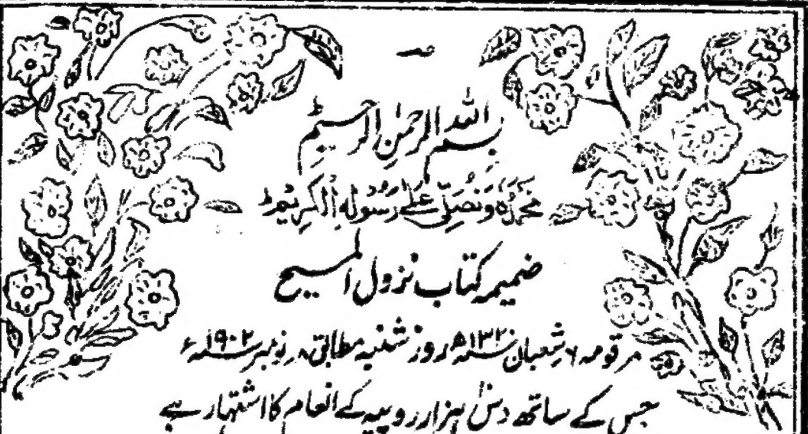 بسم اللہ الرحمٰن الرحیم
نحمدہ و نصلی علیٰ رسولہ الکریم
ضمیمہ کتاب نزول المسیح
مرقومہ ۶ شعبان ۱۳۲۰ھ روز شنبہ مطابق ۸ نومبر ۱۹۰۲ء
جس کے ساتھ دس ہزار روپیہ کے انعام کا اشتہار ہے